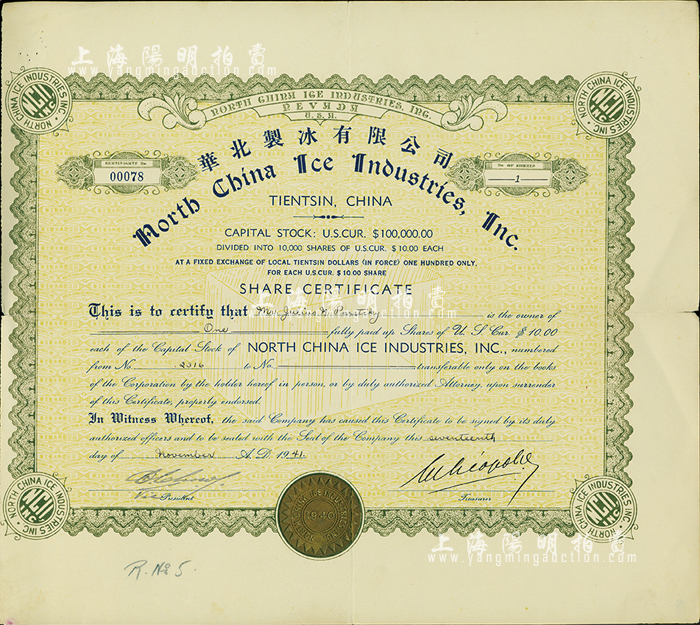 上海陽明拍賣
www.yangmingauction.com
NORTH CHINA ICE INDUSTRIES, INC.
NEVADA
U.S.A.
NORTH CHINA ICE INDUSTRIES INC.
NORTH CHINA ICE INDUSTRIES INC.
華北製冰有限公司
CERTIFICATE No.
00078
No OF SHARES
1
North China Ice Industries, Inc.
TIENTSIN, CHINA
CAPITAL STOCK: U.S.CUR. $100,000.00
DIVIDED INTO 10,000 SHARES OF U.S.CUR. $10.00 EACH
AT A FIXED EXCHANGE OF LOCAL TIENTSIN DOLLARS (IN FORCE) ONE HUNDRED ONLY,
FOR EACH U.S.CUR. $10.00 SHARE
SHARE CERTIFICATE
上海陽明拍賣
www.yangmingauction.com
This is to certify that Mr. is the owner of
One fully paid up Shares of U.S Cur. $10.00
each of the Capital Stock of NORTH CHINA ICE INDUSTRIES, INC., numbered
from No 2016 to No transferable only on the books
of the Corporation by the holder hereof in person, or by duly authorized Attorney, upon surrender
of this Certificate, properly endorsed.
In Witness Whereof, the said Company has caused this Certificate to be signed by its duly
authorized officers and to be sealed with the Seal of the Company this seventeenth
day of November A.D. 1941.
Vice President
Treasurer
NORTH CHINA ICE INDUSTRIES INC.
1940
NORTH CHINA ICE INDUSTRIES INC.
上海陽明拍賣
www.yangmingauction.com
R. No 5.